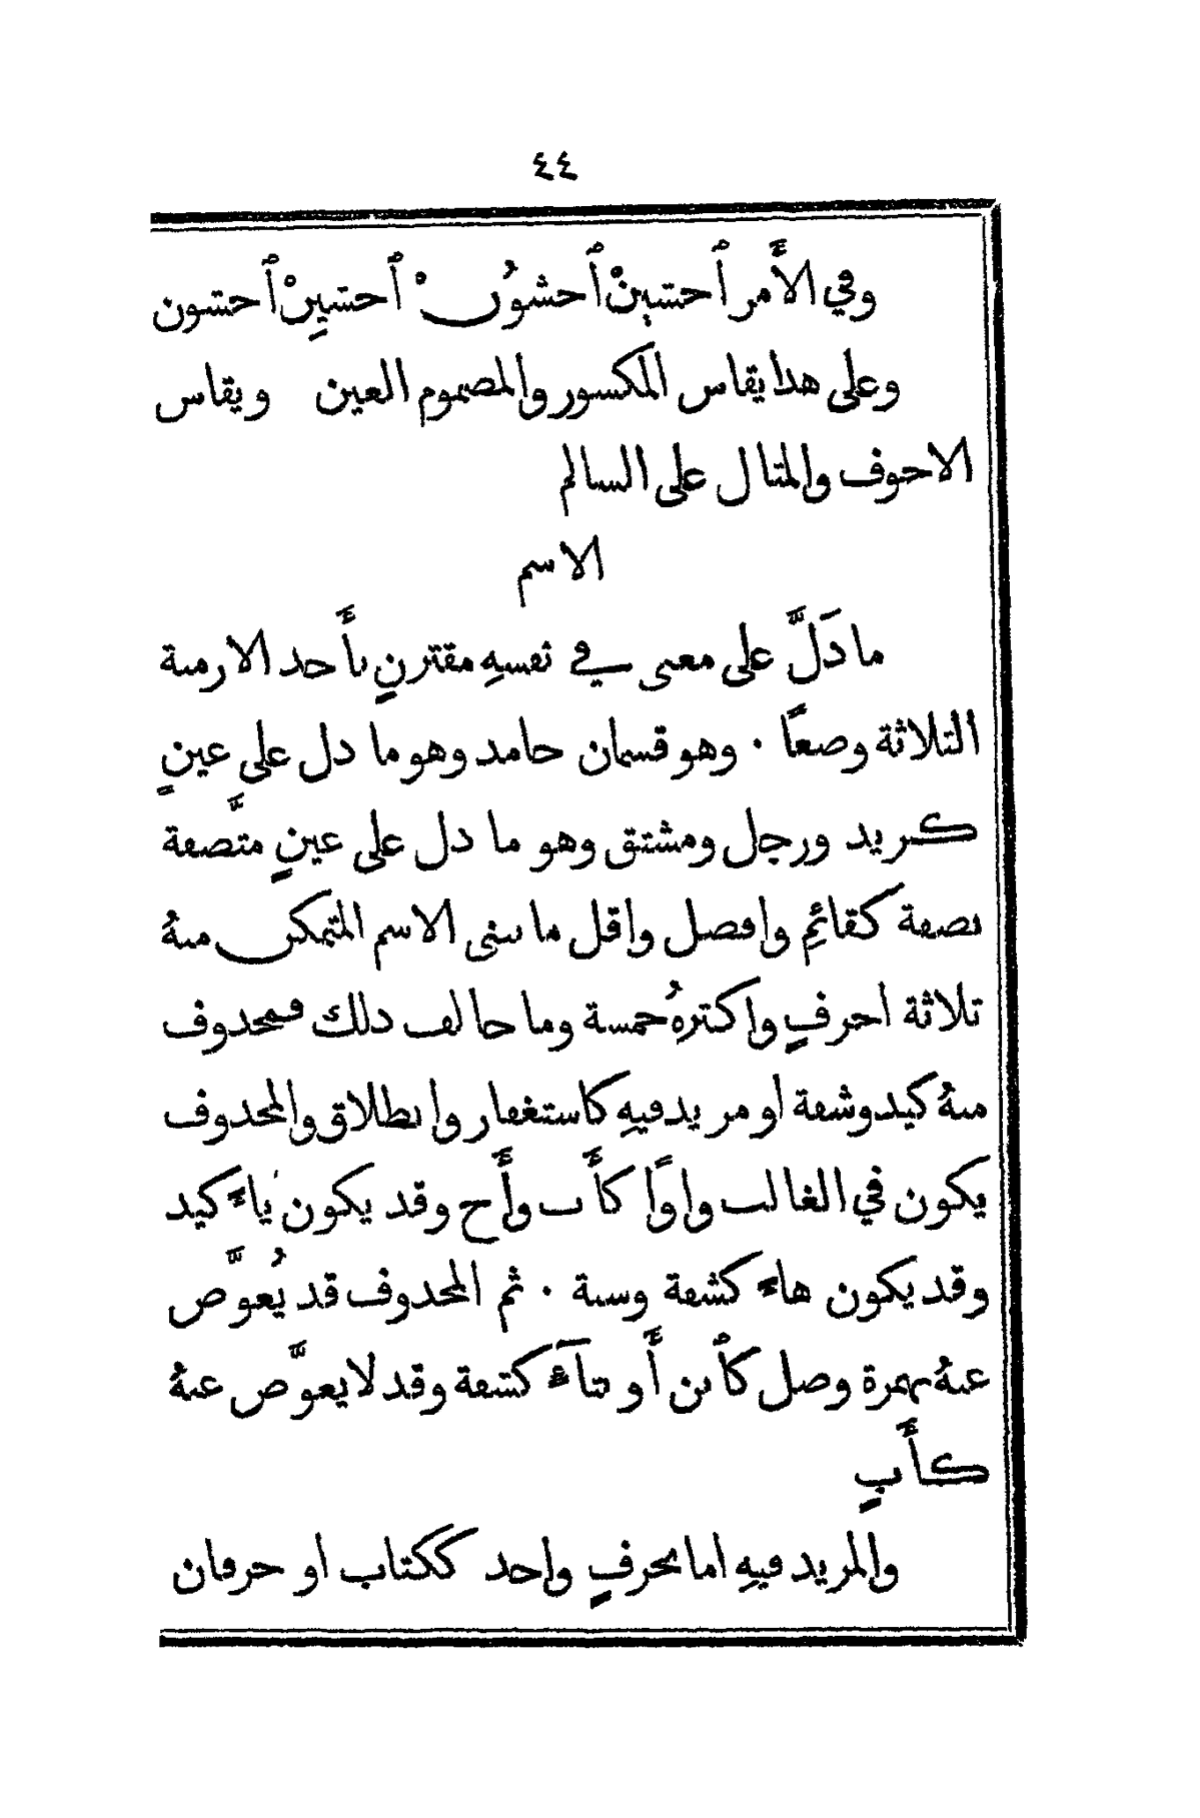 ٤٤
وفي الأَمر ٱخشَيِنْ ٱخشوُنْ ٱخشَيِنْ ٱخشون
وعلى هذا يقاس المكسور والمضموم العين ويقاس
الاجوف والمثال على السالم
الاسم
ما دَلَّ على معنى في نفسهِ مقترنٍ بأَحد الازمنة
الثلاثة وضعًا · وهو قسمان جامد وهو ما دل على عينٍ
كزيد ورجل ومشتق وهو ما دل على عينٍ متَّصفة
بصفة كقائمِ وافضل واقل ما يبنى الاسم المتمكن منهُ
ثلاثة احرفٍ واكثرهُ خمسة وما خالف ذلك فمحذوف
منهُ كيد وشفة او مزيد فيهِ كاستغفار وانطلاق والمحذوف
يكون في الغالب واوًا كأَب وأَخ وقد يكون ياءً كيد
وقد يكون هاءً كشفة وسنة · ثم المحذوف قد يُعوَّض
عنهُ بهمزة وصل كٱبن أَو بتآءٍ كشفة وقد لا يعوَّض عنهُ
كأَبٍ
والمزيد فيهِ اما بحرفٍ واحد ككتاب او حرفان